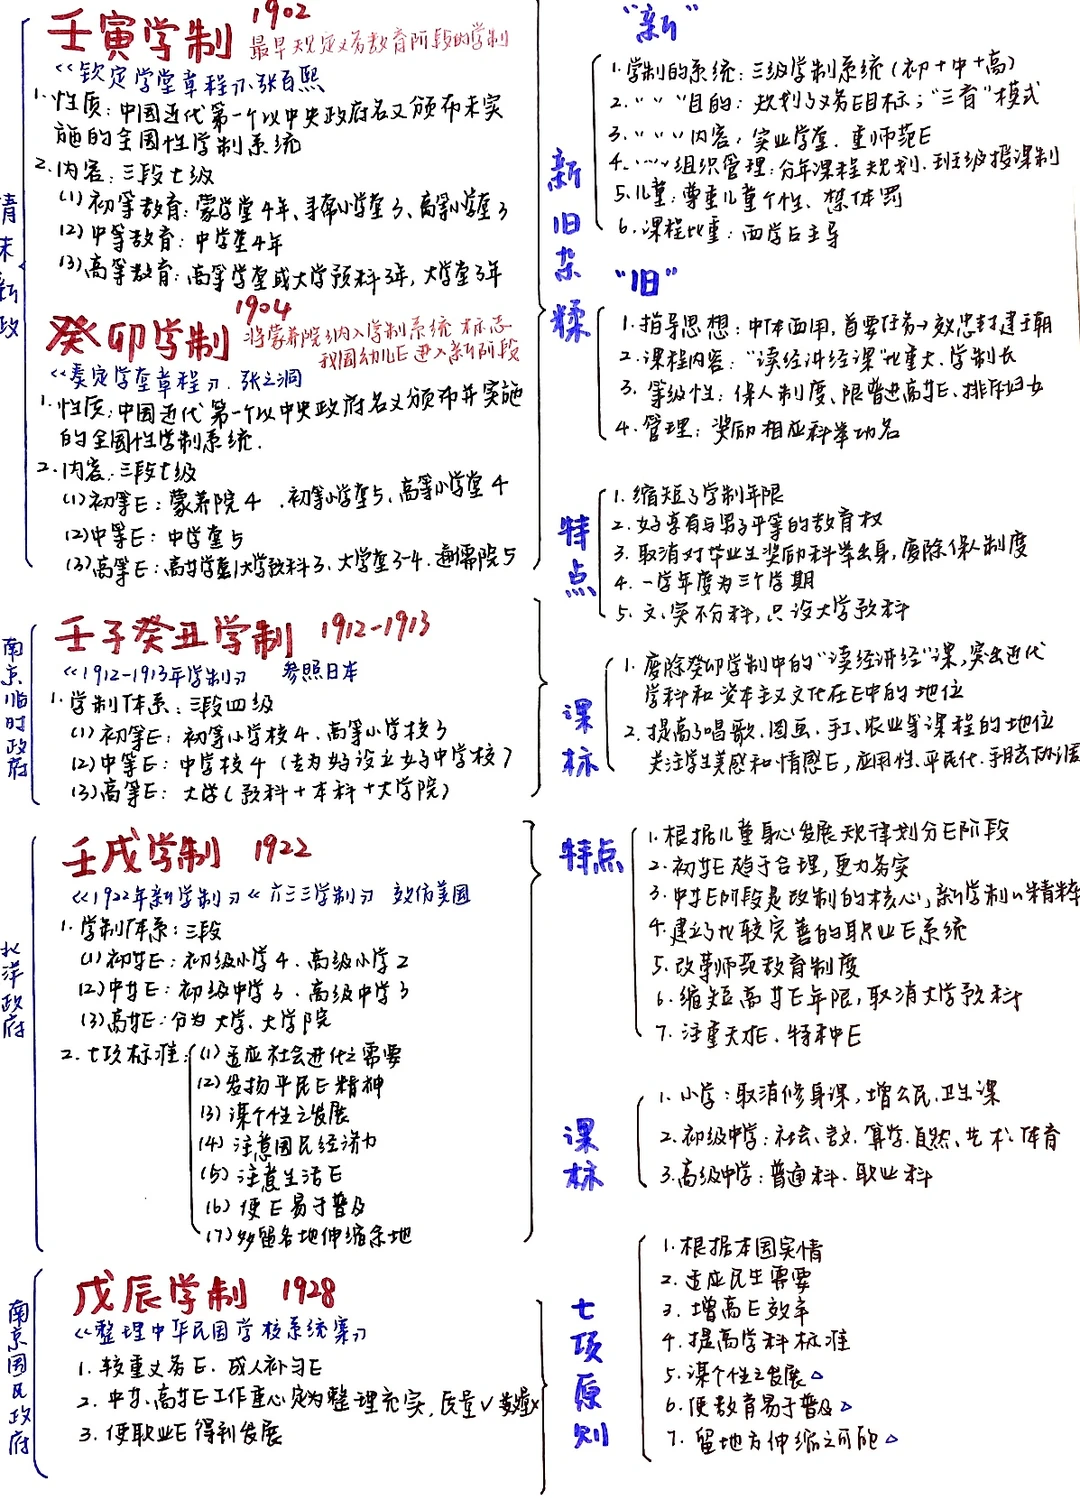 清末新政
壬寅学制 1902
最早规定义务教育阶段的学制
《钦定学堂章程》张百熙
1.性质:中国近代第一个以中央政府名义颁布未实
施的全国性学制系统
2.内容:三段七级
(1)初等教育:蒙学堂4年、寻常小学堂3、高等小学堂3
(2)中等教育:中学堂4年
(3)高等教育:高等学堂或大学预科3年,大学堂3年
癸卯学制 1904
将蒙养院纳入学制系统 标志
我国幼儿E进入新阶段
《奏定学堂章程》.张之洞
1.性质:中国近代第一个以中央政府名义颁布并实施
的全国性学制系统.
2.内容:三段七级
(1)初等E:蒙养院4、初等小学堂5、高等小学堂4
(2)中等E:中学堂5
(3)高等E:高等学堂|大学预科3、大学堂3-4.通儒院5
新旧杂糅
"新"
1.学制的系统:三级学制系统(初+中+高)
2.〃 〃 〃目的:规划了义务E目标;"三育"模式
3.〃 〃 〃内容:实业学堂.重师范E
4.〃 〃 〃组织管理:分年课程规划.班级授课制
5.儿童:尊重儿童个性、禁体罚
6.课程比重:西学占主导
"旧"
1.指导思想:中体西用,首要任务→效忠封建王朝
2.课程内容:"读经讲经课"比重大.学制长
3.等级性:保人制度、限普进高等E、排斥妇女
4.管理:奖励相应科举功名
南京临时政府
壬子癸丑学制 1912-1913
《1912-1913年学制》 参照日本
1.学制体系:三段四级
(1)初等E:初等小学校4、高等小学校3
(2)中等E:中学校4(专为女子设立女子中学校)
(3)高等E:大学(预科+本科+大学院)
特点
1.缩短了学制年限
2.女子享有与男子平等的教育权
3.取消对毕业生奖励科举出身,废除保人制度
4.一学年度为三个学期
5.文、实不分科,只设大学预科
课标
1.废除癸卯学制中的"读经讲经"课,突出近代
学科和资本主义文化在E中的地位
2.提高了唱歌.图画、手工、农业等课程的地位
关注学生美感和情感E,应用性.平民化.手脑协调
北洋政府
壬戌学制 1922
《1922年新学制》《六三三学制》 效仿美国
1.学制体系:三段
(1)初等E:初级小学4、高级小学2
(2)中等E:初级中学3、高级中学3
(3)高等E:分为大学、大学院
2.七项标准:(1)适应社会进化之需要
(2)发扬平民E精神
(3)谋个性之发展
(4)注意国民经济力
(5)注意生活E
(6)使E易于普及
(7)多留各地伸缩余地
特点
1.根据儿童身心发展规律划分E阶段
2.初等E趋于合理,更力务实
3.中等E阶段是改制的核心,新学制的精粹
4.建立了比较完善的职业E系统
5.改革师范教育制度
6.缩短高等E年限,取消大学预科
7.注重天才E.特种E
课标
1.小学:取消修身课,增公民.卫生课
2.初级中学:社会、言文.算学.自然、艺术、体育
3.高级中学:普通科.职业科
南京国民政府
戊辰学制 1928
《整理中华民国学校系统案》
1.较重义务E.成人补习E
2.中等、高等E工作重心定为整理充实,质量√数量×
3.使职业E得到发展
七项原则
1.根据本国实情
2.适应民生需要
3.增高E效率
4.提高学科标准
5.谋个性之发展△
6.使教育易于普及△
7.留地方伸缩之可能△